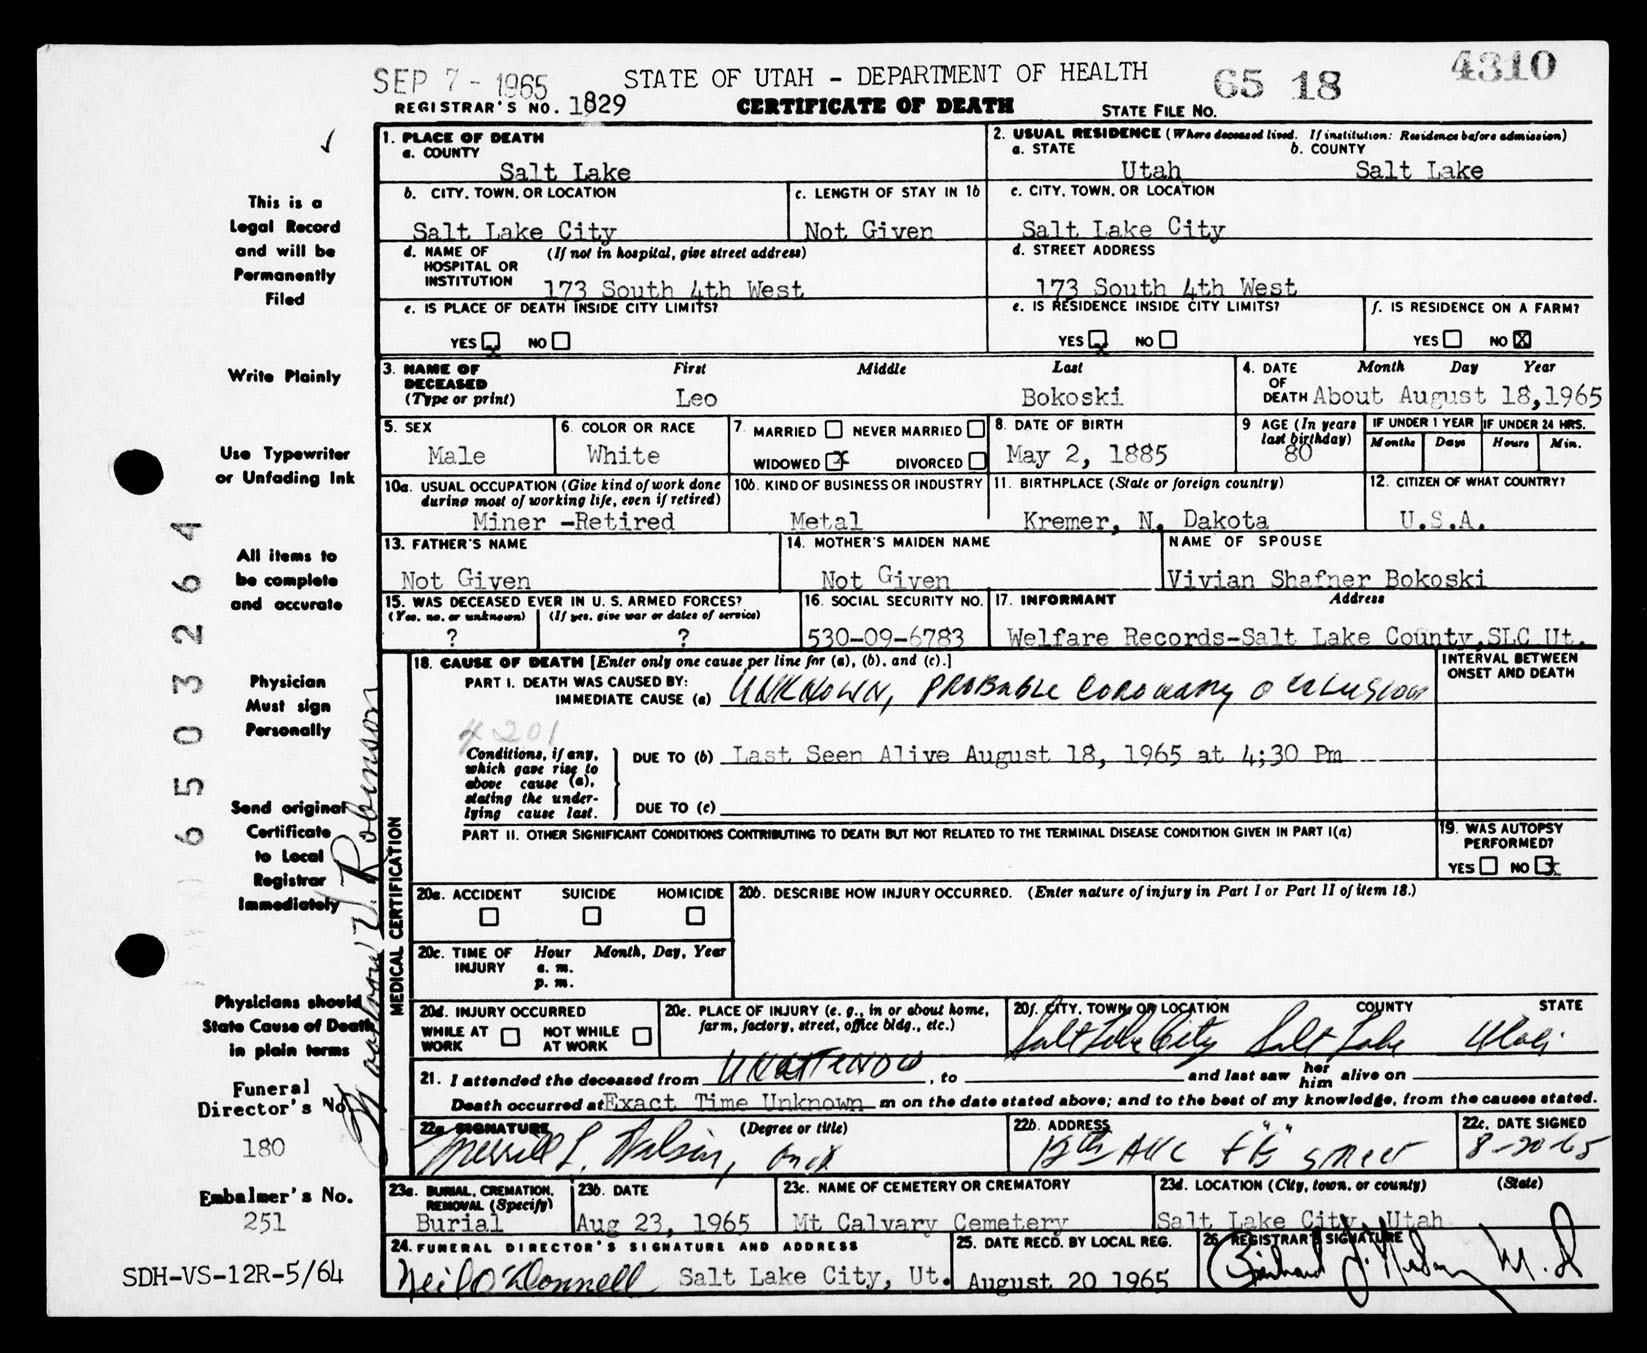 SEP 7 - 1965 STATE OF UTAH - DEPARTMENT OF HEALTH 65 18 4310
REGISTRAR'S NO. 1829 CERTIFICATE OF DEATH STATE FILE NO.
1. PLACE OF DEATH
a. COUNTY
Salt Lake
2. USUAL RESIDENCE (Where deceased lived. If institution: Residence before admission)
a. STATE b. COUNTY
Utah Salt Lake
b. CITY, TOWN, OR LOCATION
Salt Lake City
c. LENGTH OF STAY IN 1b
Not Given
c. CITY, TOWN, OR LOCATION
Salt Lake City
d. NAME OF (If not in hospital, give street address)
HOSPITAL OR
INSTITUTION
173 South 4th West
d. STREET ADDRESS
173 South 4th West
e. IS PLACE OF DEATH INSIDE CITY LIMITS?
YES X NO
e. IS RESIDENCE INSIDE CITY LIMITS?
YES X NO
f. IS RESIDENCE ON A FARM?
YES NO X
3. NAME OF First Middle Last
DECEASED
(Type or print) Leo Bokoski
4. DATE Month Day Year
OF
DEATH About August 18,1965
5. SEX
Male
6. COLOR OR RACE
White
7. MARRIED NEVER MARRIED
WIDOWED X DIVORCED
8. DATE OF BIRTH
May 2, 1885
9 AGE (In years
last birthday)
80
IF UNDER 1 YEAR IF UNDER 24 HRS.
Months Days Hours Min.
10a. USUAL OCCUPATION (Give kind of work done
during most of working life, even if retired)
Miner -Retired
10b. KIND OF BUSINESS OR INDUSTRY
Metal
11. BIRTHPLACE (State or foreign country)
Kremer, N. Dakota
12. CITIZEN OF WHAT COUNTRY?
U.S.A.
13. FATHER'S NAME
Not Given
14. MOTHER'S MAIDEN NAME
Not Given
NAME OF SPOUSE
Vivian Shafner Bokoski
15. WAS DECEASED EVER IN U. S. ARMED FORCES?
(Yes, no, or unknown) (If yes, give war or dates of service)
? ?
16. SOCIAL SECURITY NO.
530-09-6783
17. INFORMANT Address
Welfare Records-Salt Lake County,SLC Ut.
18. CAUSE OF DEATH [Enter only one cause per line for (a), (b), and (c).]
INTERVAL BETWEEN
ONSET AND DEATH
PART I. DEATH WAS CAUSED BY:
IMMEDIATE CAUSE (a) UNKNOWN, PROBABLE CORONARY OCCLUSION
4201
Conditions, if any,
which gave rise to
above cause (a),
stating the under-
lying cause last.
DUE TO (b) Last Seen Alive August 18, 1965 at 4;30 Pm
DUE TO (c)
PART II. OTHER SIGNIFICANT CONDITIONS CONTRIBUTING TO DEATH BUT NOT RELATED TO THE TERMINAL DISEASE CONDITION GIVEN IN PART I(a)
19. WAS AUTOPSY
PERFORMED?
YES NO X
20a. ACCIDENT SUICIDE HOMICIDE
20b. DESCRIBE HOW INJURY OCCURRED. (Enter nature of injury in Part I or Part II of item 18.)
20c. TIME OF Hour Month, Day, Year
INJURY a. m.
p. m.
20d. INJURY OCCURRED
WHILE AT NOT WHILE
WORK AT WORK
20e. PLACE OF INJURY (e. g., in or about home,
farm, factory, street, office bldg., etc.)
20f. CITY, TOWN, OR LOCATION COUNTY STATE
Salt Lake City Salt Lake Utah
21. I attended the deceased from UNATTENDED , to and last saw her him alive on
Death occurred at Exact Time Unknown m on the date stated above; and to the best of my knowledge, from the causes stated.
22a SIGNATURE (Degree or title)
Merrill L. Wilson,
22b. ADDRESS
12th Ave & "B" Street
22c. DATE SIGNED
8-20-65
23a. BURIAL, CREMATION,
REMOVAL (Specify)
Burial
23b. DATE
Aug 23, 1965
23c. NAME OF CEMETERY OR CREMATORY
Mt Calvary Cemetery
23d. LOCATION (City, town, or county) (State)
Salt Lake City Utah
24. FUNERAL DIRECTOR'S SIGNATURE AND ADDRESS
Neil O'Donnell Salt Lake City, Ut.
25. DATE RECD. BY LOCAL REG.
August 20 1965
26 REGISTRAR'S SIGNATURE
M.D
MEDICAL CERTIFICATION
This is a
Legal Record
and will be
Permanently
Filed
Write Plainly
Use Typewriter
or Unfading Ink
All items to
be complete
and accurate
Physician
Must sign
Personally
Send original
Certificate
to Local
Registrar
Immediately
Physicians should
State Cause of Death
in plain terms
Funeral
Director's No
180
Embalmer's No.
251
SDH-VS-12R-5/64
6503264
V. Robinson